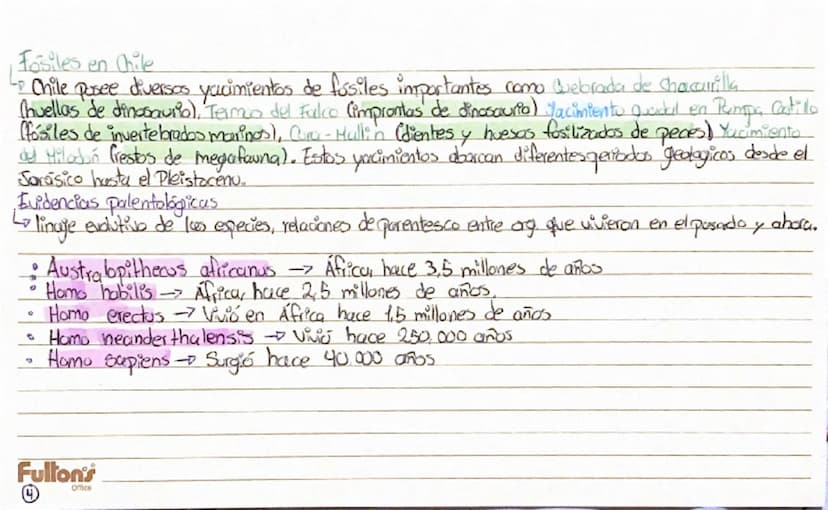 Fósiles en Chile
↳ Chile posee diversos yacimientos de fósiles importantes como Quebrada de Chacarilla
(huellas de dinosaurio), Termas del Flaco (improntas de dinosaurio) Yacimiento en
(fósiles de invertebrados marinos), Cura-Mallín (dientes y huesos fosilizados de peces) Yacimiento
del Milodón (restos de megafauna). Estos yacimientos abarcan diferentes periodos geologicos desde el
Jurásico hasta el Pleistoceno.
Evidencias palentológicas
↳ linaje evolutivo de las especies, relaciones de parentesco entre org. que vivieron en el pasado y ahora.
• Australopithecus africanus → África, hace 3,5 millones de años
• Homo habilis → África, hace 2,5 millones de años,
• Homo erectus → Vivió en África hace 1,5 millones de años
• Homo neanderthalensis → Vivió hace 250.000 años
• Homo sapiens → Surgió hace 40.000 años
Fulton's
Office
4